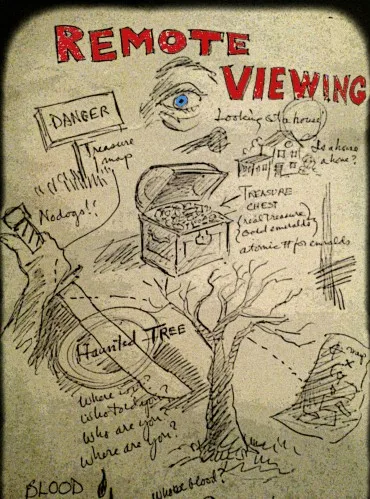 REMOTE
VIEWING
DANGER
Looking at a house
Treasure
map
Is a house
a home?
No dogs!!
TREASURE
CHEST
(real treasure)
Gold emeralds
atomic # for emeralds
Haunted TREE
map
X
Where is it?
Who told you?
Who are you?
Where are you?
BLOOD
Whose blood?